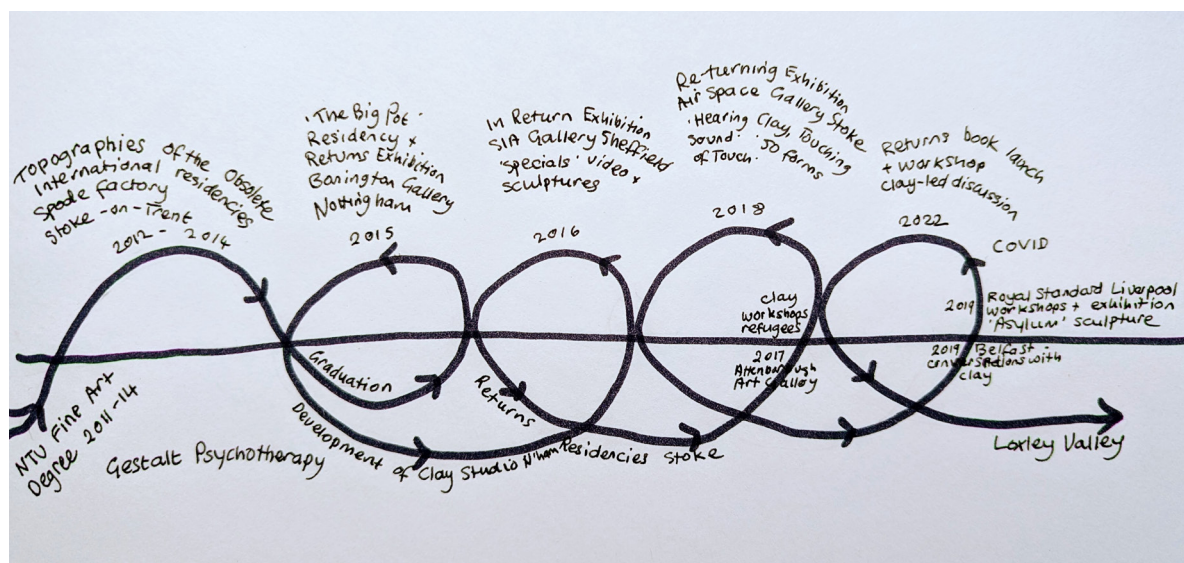 Topographies of the Obsolete
International residencies
Spode Factory
Stoke-on-Trent
2012 - 2014
'The Big Pot'
Residency +
Returns Exhibition
Bonington Gallery
Nottingham
2015
In Return Exhibition
SIA Gallery Sheffield
'Specials' video +
sculptures
2016
Returning Exhibition
Air Space Gallery Stoke
'Hearing Clay, Touching
Sound'. '50 forms
of Touch'
2018
Returns book launch
+ workshop
clay-led discussion
2022
COVID
2019 Royal Standard Liverpool
workshops + exhibition
'Asylum' sculpture
2019 Belfast -
conversations with
clay
clay
workshops
refugees
2017
Attenborough
Art Gallery
Graduation
Returns
Development of Clay Studio N'ham
Residencies Stoke
NTU Fine Art
Degree 2011-14
Gestalt Psychotherapy
Loxley Valley